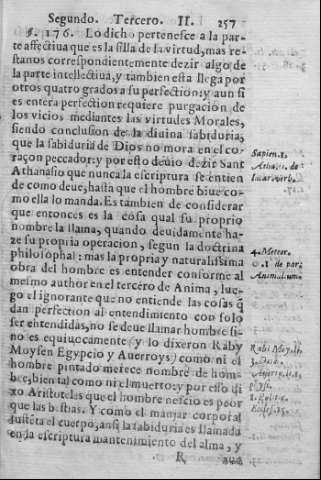 Segundo. Tercero. II. 257
§. 176. Lo dicho pertenesce a la par-
te affectiua que es la silla de la virtud, mas res-
tanos correspondientemente dezir algo de
la parte intellectiua, y tambien esta llega por
otros quatro grados a su perfection: y aun si
es entera perfection requiere purgacion de
los vicios mediantes las virtudes Morales,
siendo conclusion de la diuina sabiduria,
que la sabiduria de Dios no mora en el co-
raçon peccador: y por esto deuio dezir Sant
Athanasio que nunca la escriptura se entien
de como deue, hasta que el hombre biue co-
mo ella lo manda. Es tambien de considerar
que entonces es la cosa qual su proprio
nombre la llama, quando deuidamente ha-
ze su propria operacion, segun la doctrina
philosophal: mas la propria y naturalissima
obra del hombre es entender conforme al
mesmo author en el tercero de Anima, lue-
go el ignorante que no entiende las cosas q̃
dan perfection al entendimiento con solo
ser entendidas, no se deue llamar hombre si-
no es equiuocamente (y lo dixeron Raby
Moysen Egypcio y Auerroys) como ni el
hombre pintado merece nombre de hom-
bre, bien tal como ni el muerto: y por esso di
xo Aristoteles que el hombre nescio es peor
que las bestias. Y como el manjar corporal
sustēta el cuerpo, ansi la sabiduria es llamada
en la escriptura mantenimiento del alma, y
R
Sapien. 1.
Athana. de
4. Meteor.
1 de par.
Animalium.
Rabi Moy.